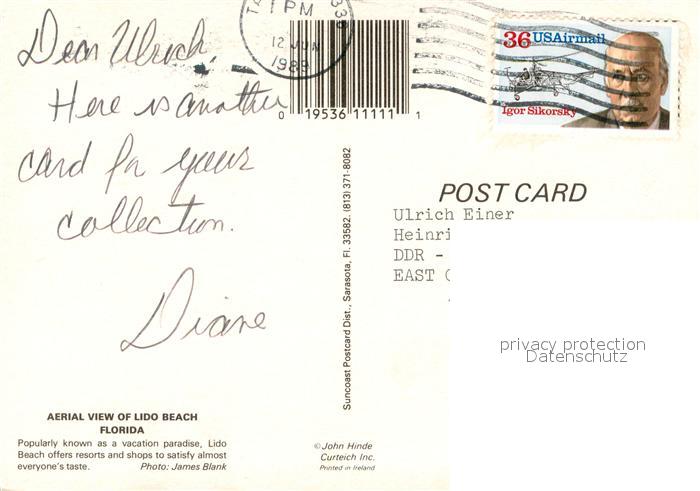 Dear Ulrich,
Here is another
card for your
collection.
Diane
AERIAL VIEW OF LIDO BEACH
FLORIDA
Popularly known as a vacation paradise, Lido
Beach offers resorts and shops to satisfy almost
everyone's taste. Photo: James Blank
1 PM
12 JUN
1989
0 19536 11111 1
Suncoast Postcard Dist., Sarasota, Fl. 33582. (813) 371-8082
© John Hinde
Curteich Inc.
Printed in Ireland
36 USAirmail
Igor Sikorsky
POST CARD
Ulrich Einer
Heinri
DDR -
EAST
privacy protection
Datenschutz